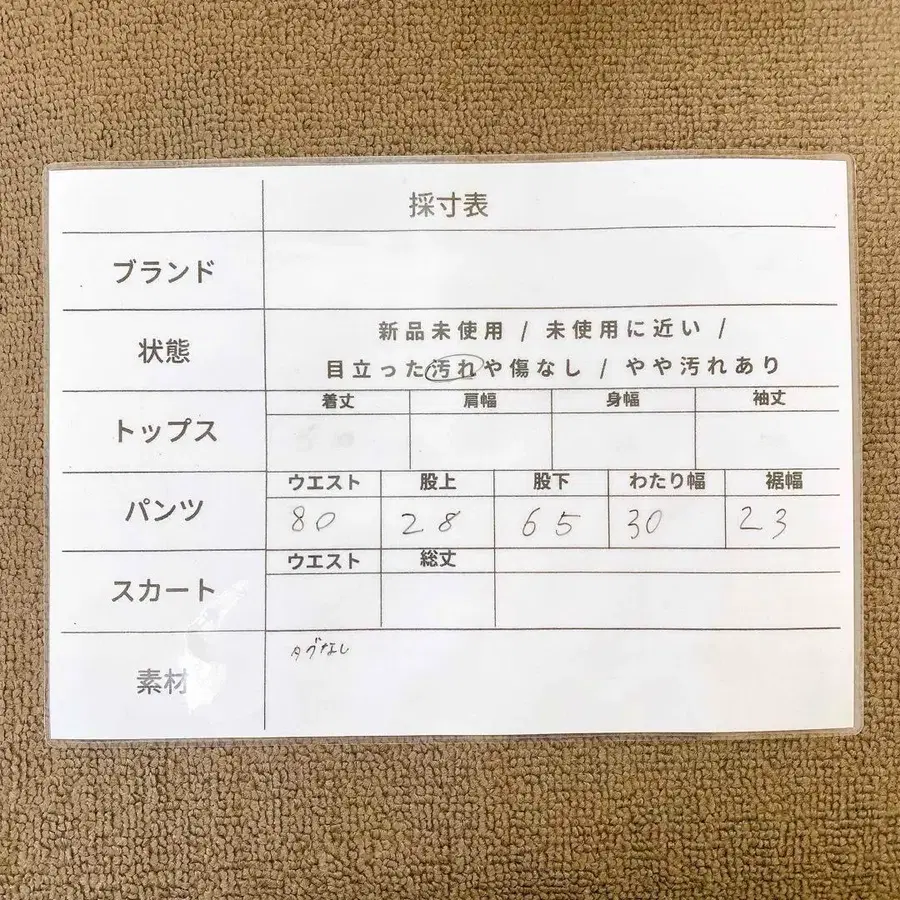 採寸表
ブランド
状態
新品未使用 / 未使用に近い /
目立った汚れや傷なし / やや汚れあり
トップス
着丈 肩幅 身幅 袖丈
パンツ
ウエスト 股上 股下 わたり幅 裾幅
80 28 65 30 23
スカート
ウエスト 総丈
素材
タグなし